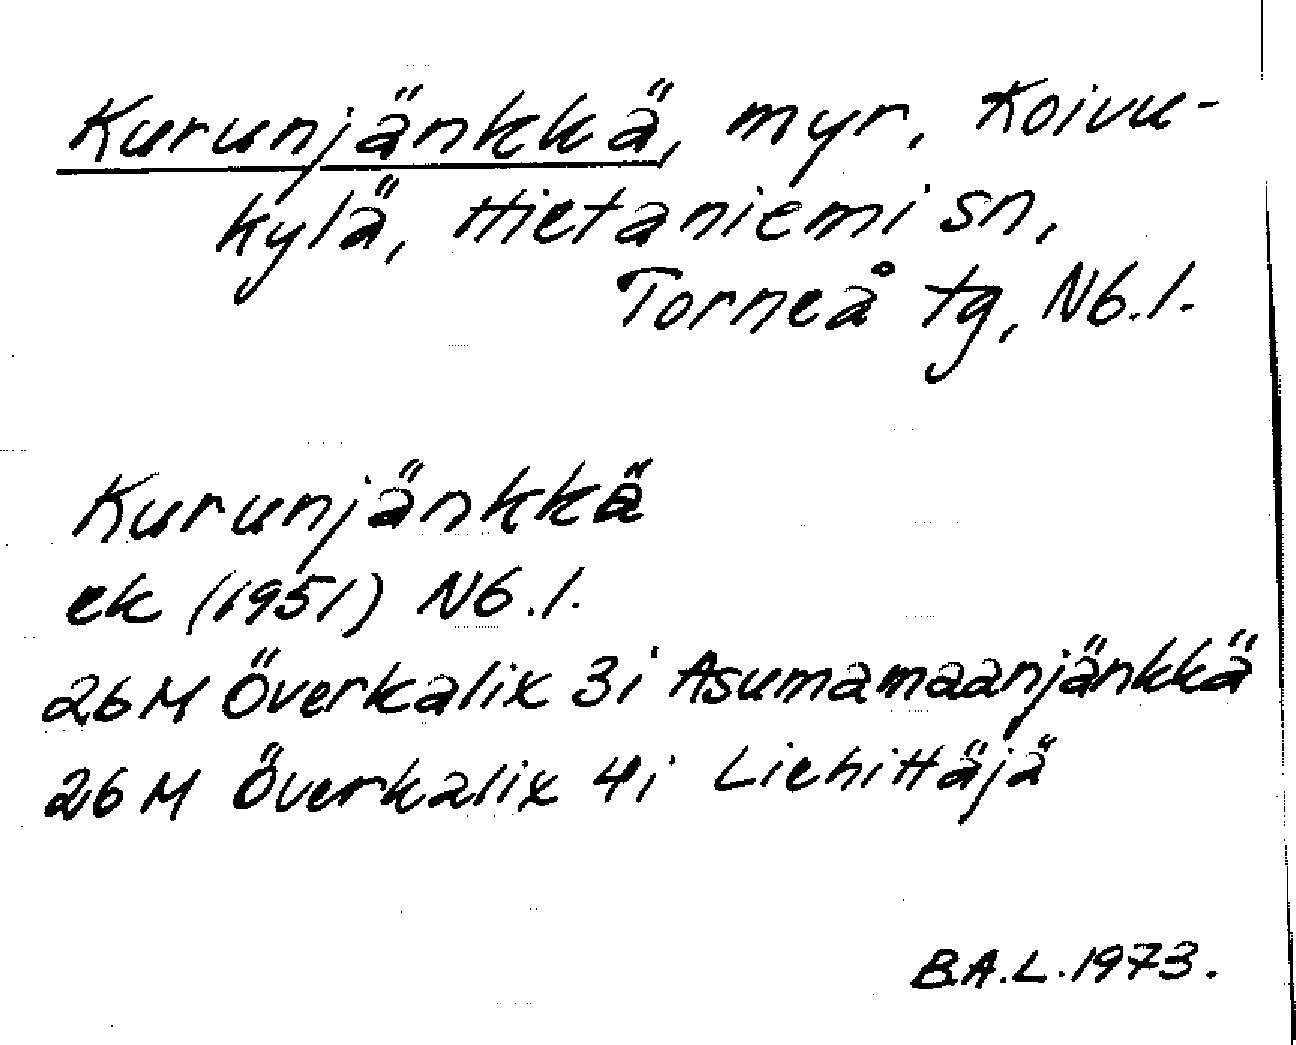 Kurunjänkkä, myr, Koivu-
kylä, Hietaniemi sn,
Torneå tg, N6.1.
Kurunjänkkä
ek (1951) N6.1.
26 M Överkalix 3i Asumamaanjänkkä
26 M Överkalix 4i Liehittäjä
B.A.L. 1973.